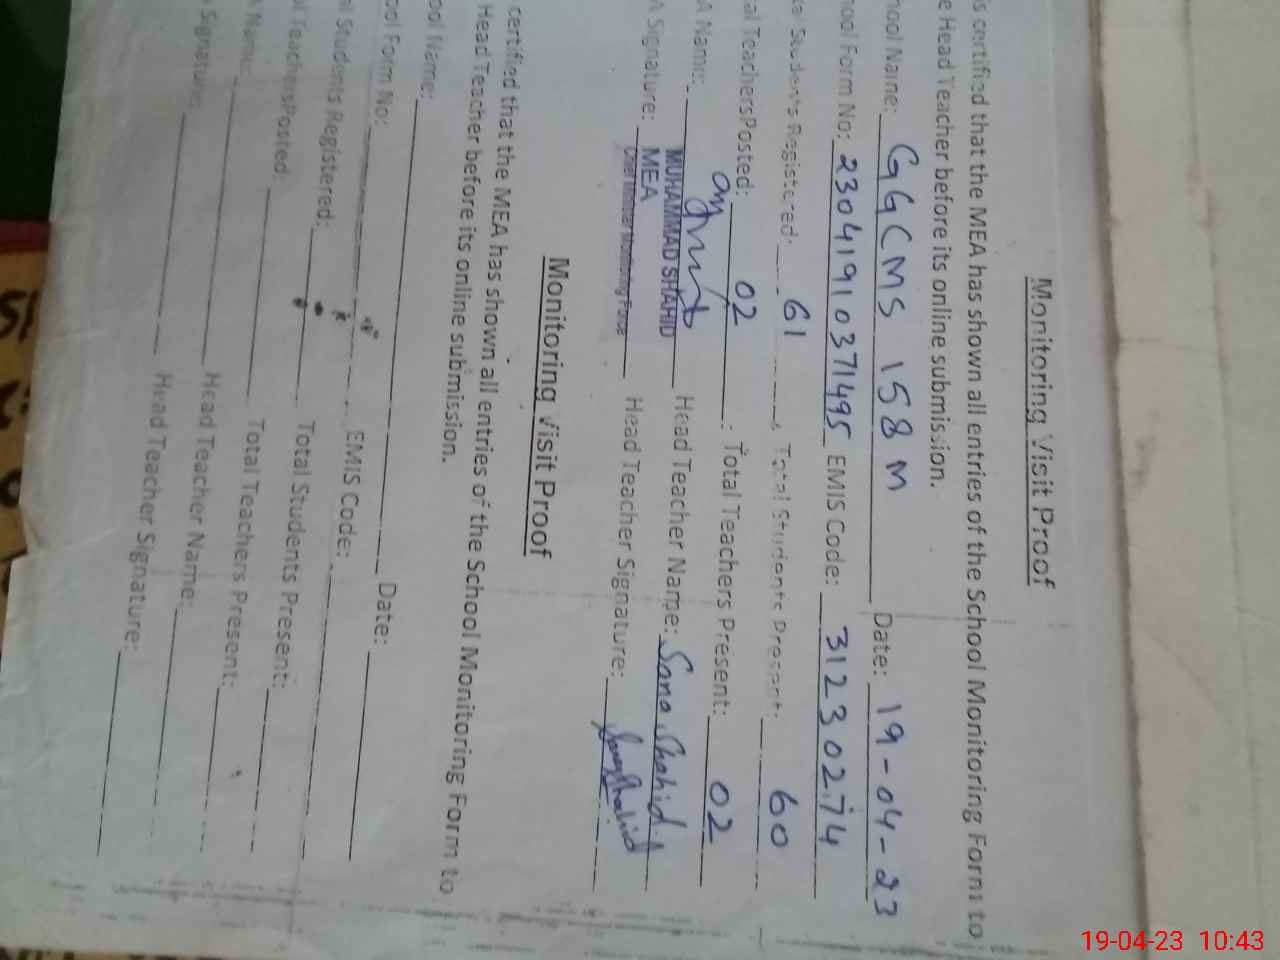 Monitoring Visit Proof
s certified that the MEA has shown all entries of the School Monitoring Form to
e Head Teacher before its online submission.
hool Name: GGCMS 158 M Date: 19-04-23
hool Form No: 2304191 0371495 EMIS Code: 31230274
tal Students Registered: 61 Total Students Present: 60
al TeachersPosted: 02 Total Teachers Present: 02
A Name: MUHAMMAD SHAHID Head Teacher Name: Sana Shahid
A Signature: MEA Head Teacher Signature: Sana Shahid
Chief Minister Monitoring Force
Monitoring Visit Proof
certified that the MEA has shown all entries of the School Monitoring Form to
Head Teacher before its online submission.
ool Name: Date:
ool Form No: EMIS Code:
al Students Registered: Total Students Present:
al TeachersPosted: Total Teachers Present:
A Name: Head Teacher Name:
Signature: Head Teacher Signature:
19-04-23 10:43